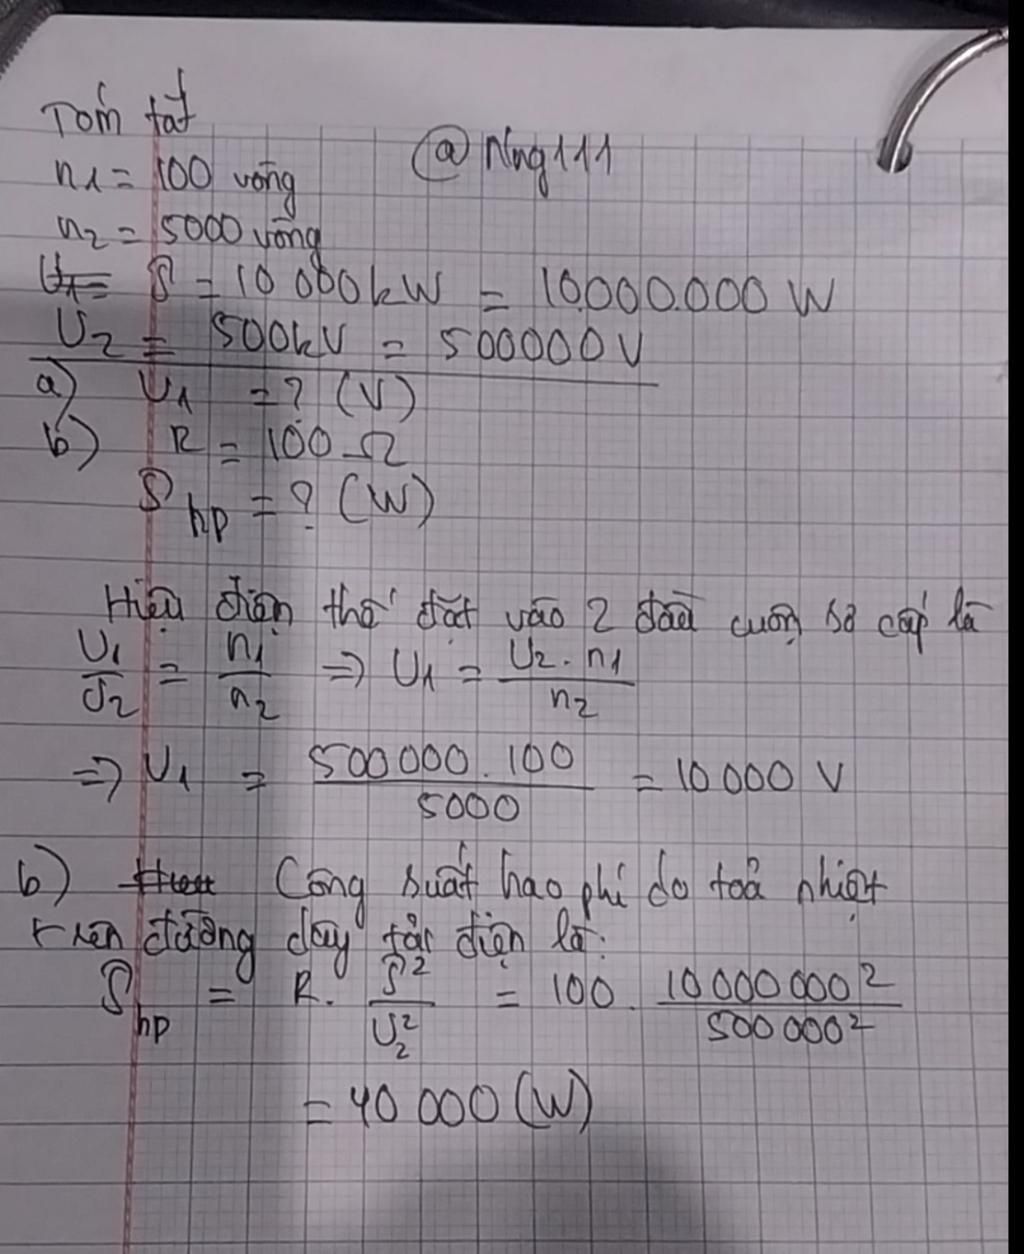 Tóm tắt
@nng111
n1 = 100 vòng
n2 = 5000 vòng
U1 = P = 10 000kW = 10.000.000 W
U2 = 500kV = 500000 V
a) U1 = ? (V)
b) R = 100 Ω
P hp = ? (W)
Hiệu điện thế đặt vào 2 đầu cuộn sơ cấp là
U1/U2 = n1/n2 => U1 = U2 . n1/n2
=> U1 = 500 000 . 100/5000 = 10 000 V
b) Công suất hao phí do toả nhiệt
trên đường dây tải điện là:
P hp = R. P²/U2² = 100 . 10 000 000²/500 000²
= 40 000 (W)